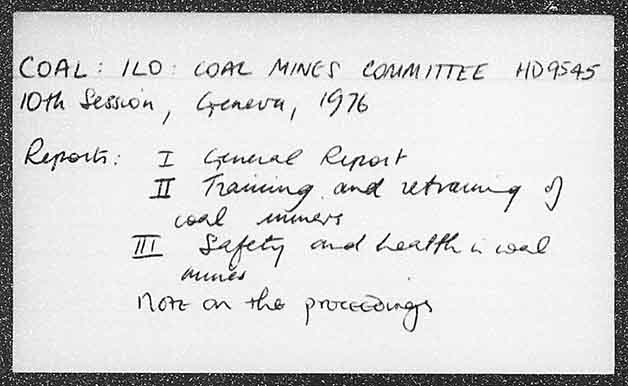 COAL: ILO: COAL MINES COMMITTEE HD9545
10th Session, Geneva, 1976
Reports: I General Report
II Training and retraining of
coal miners
III Safety and health in coal
mines
Note on the proceedings